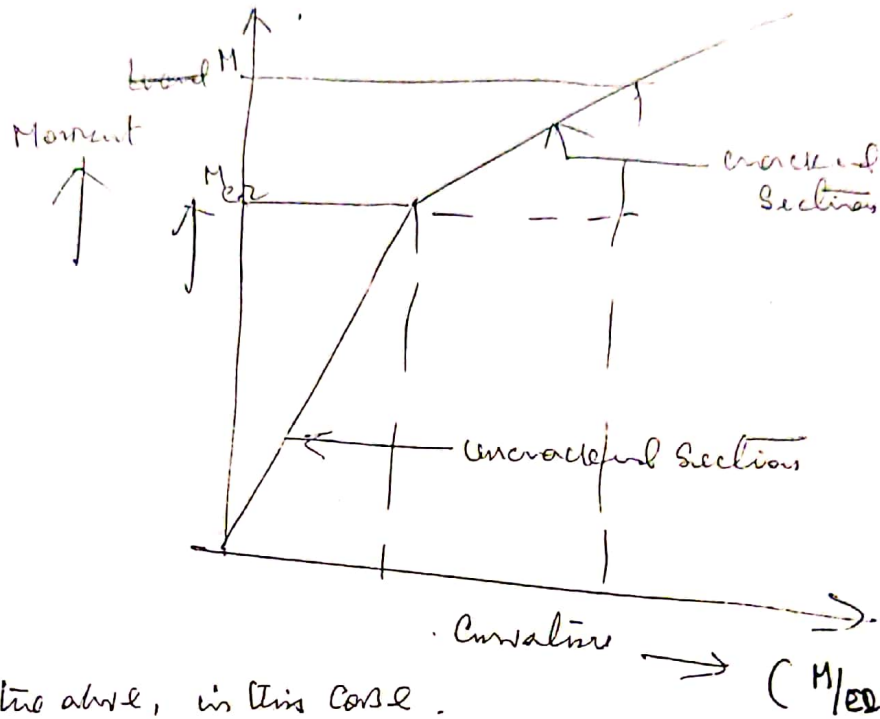 M
Moment
M_cr
cracked
Section
uncracked Section
Curvature
(M/EI
the above, in this case.